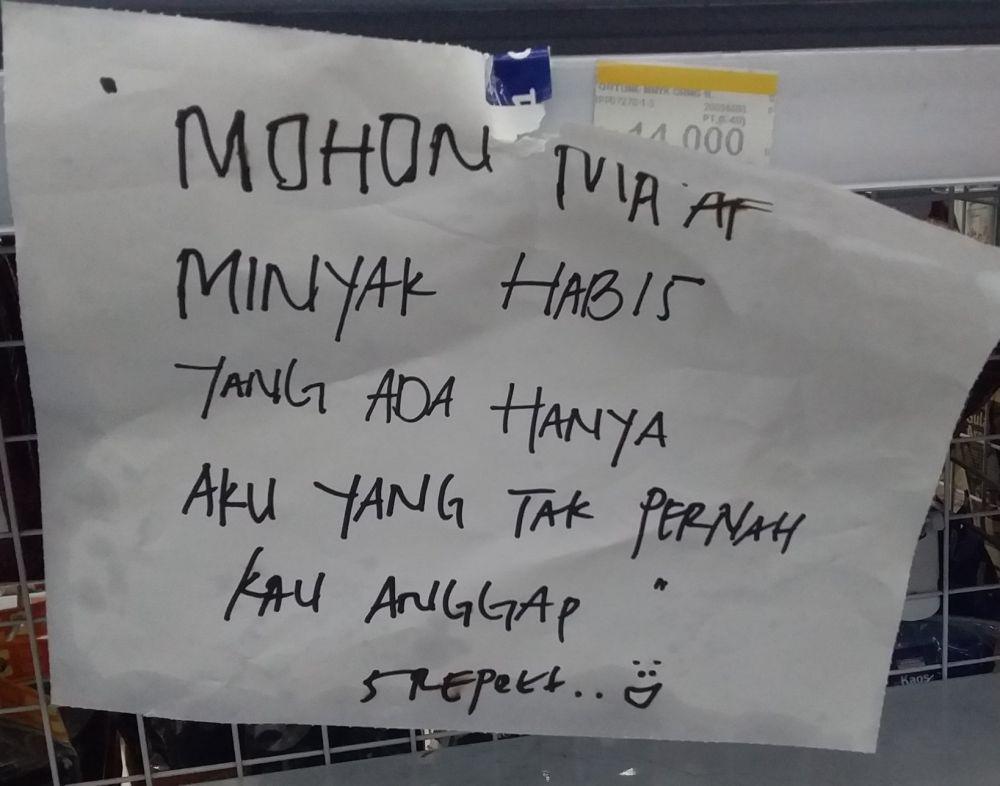 MOHON MAAF
MINYAK HABIS
YANG ADA HANYA
AKU YANG TAK PERNAH
KAU ANGGAP "
14.000
Kaos